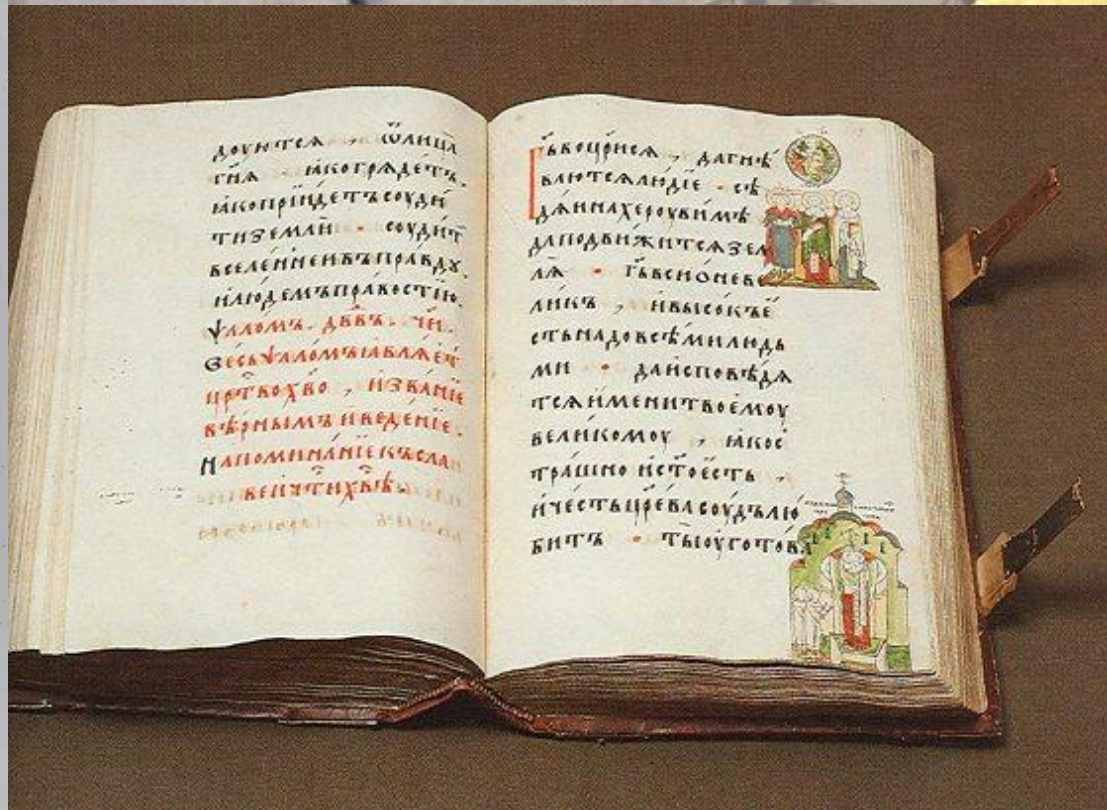 дꙋютсѧ , ѿлица
гн҃ѧ ꙗкогрѧдетъ.
ꙗкопрїидетъсоуди
тиземли · соуди́т
вселеннеивъправдꙋ.
илюдемъправостїю.
ѱаломъ. дв҃дъ. чи҃.
Весьѱаломъꙗвлѧет
црⷭ҇твохв҃о , извѣнїе
вѣрнымъиведенїе.
Напоминанїекъсла
веничтихв҃ѣ.
Гь҃воцрисѧ , дагнѣ
ваютсѧлюдїе · сѣ
дѧинахероувимѣ
даподвижитсѧзем
лѧ · гь҃всионеве
ликъ , ивысокъе
стьнадовсѣмилюдь
ми · даисповѣдѧ
тсѧимениитвоемоу
великомоу , ꙗкос
трашно ист҃оесть ,
ичестьцр҃евасоудълю
битъ · тыоуготова